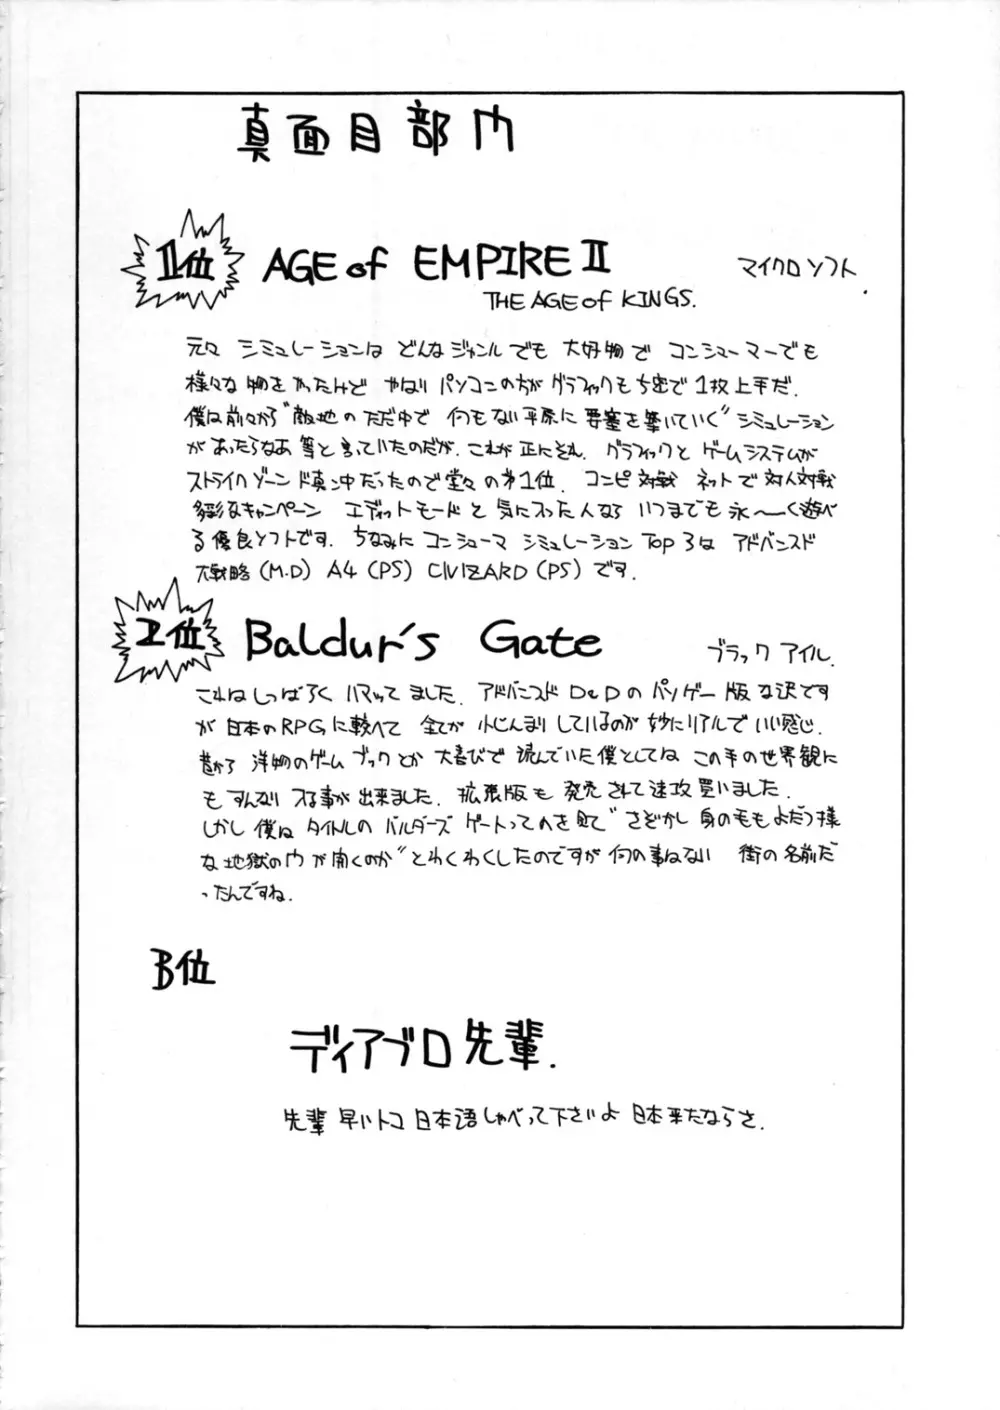 真面目部門
1位 AGE of EMPIRE II マイクロソフト.
THE AGE of KINGS.
元々 シミュレーションは どんなジャンルでも 大好物で コンシューマーでも
様々な物をやったけど やはり パソコンの方が グラフィックも ち密で 1枚上手だ.
僕は前々から"敵地のただ中で 何もない平原に 要塞を築いていく"シミュレーション
があったらなあ 等と言っていたのだが, これが正にそれ. グラフィックと ゲームシステムが
ストライクゾーン ド真ン中だったので堂々の第1位. コンピ対戦 ネットで対人対戦
多彩なキャンペーン エディットモードと 気に入った人なら いつまでも永〜く遊べ
る優良ソフトです. ちなみに コンシューマ シミュレーション Top 3は アドバンスド
大戦略 (M.D) A4 (PS) CIVIZARD (PS) です.
2位 Baldur's Gate ブラック アイル.
これはしっばらく ハマッてました. アドバンスド D&Dの パソゲー版な訳です
が 日本のRPGに較べて 全てが 小じんまりしているのが 妙にリアルで いい感じ.
昔から 洋物のゲームブックとか 大喜びで 読んでいた僕としては この手の世界観に
もすんなり 入る事が出来ました. 拡張版も 発売されて速攻買いました.
しかし 僕は タイトルの バルダーズ ゲートってのを見て"さぞかし 身の毛もよだつ様
な 地獄の門が開くのか"とわくわくしたのですが 何の事はない 街の名前だ
ったんですね.
B位
ディアブロ先輩.
先輩 早いトコ 日本語しゃべって下さいよ 日本来たならさ.